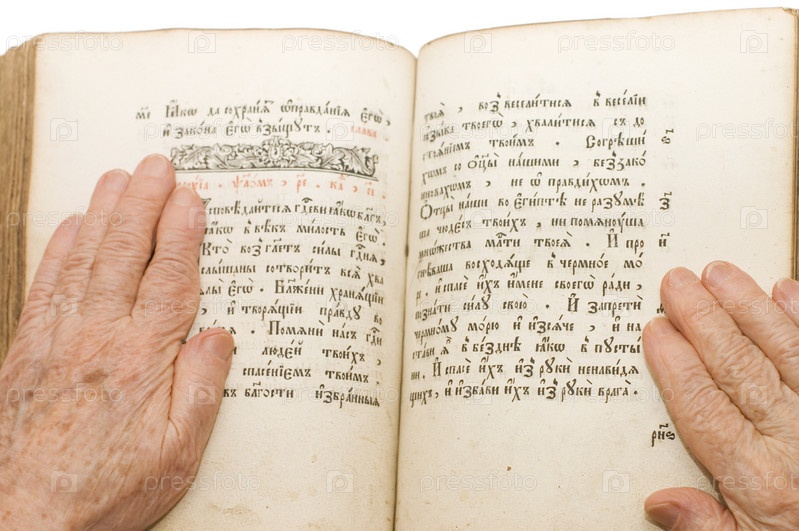 м҃е Ꙗ҆́кѡ да сохранѧ́тъ ѡ҆правда́нїѧ є҆гѡ̀,
и҆ зако́на є҆гѡ̀ взы́щутъ. сла́ва
ѱало́мъ, р҃є.
повѣ́дайтесѧ гдⷭ҇еви ꙗ҆́кѡ бл҃гъ,
ꙗ҆́кѡ в вѣ́къ ми́лость є҆гѡ̀.
Кто̀ возгл҃етъ си́лы гдⷭ҇нѧ,
слы́шаны сотвори́тъ всѧ̀ хва
лы̀ є҆гѡ̀. Блаже́ни хранѧ́щїи
, и҆ творѧ́щїи пра́вду во
. Помѧнѝ на́съ гдⷭ҇и
люде́й твои́хъ,
спасе́нїемъ твои́мъ.
въ бл҃гости и҆збра́нныѧ
твоѧ̑, возвесели́тисѧ в весе́лїи
ꙗ҆зы́ка твоегѡ̀, хвали́тисѧ съ до
стоѧ́нїемъ твои́мъ. Согрѣши́
хомъ со ѻ҆ц҃ы̀ на́шими, беззако́
нновахомъ, не ѡ҆правди́хомъ.
Ѻ҆тцы̀ на́ши во є҆гѵ́птѣ не разꙋмѣ́
ша чюде́съ твои́хъ, ни помѧнꙋ́ша
мно́жества млⷭ҇ти твоеѧ̀. И҆ про
гнѣ́ваша восходѧ́ще в че́рмное мо́
ре. и҆ спасѐ и҆́хъ и҆́мене своегѡ̀ ра́ди,
позна́ти си́лꙋ свою̀. И҆ запретѝ
че́рмномꙋ мо́рю и҆ и҆зсѧ́че, и҆ на
ста́ви ѧ҆̀ в бе́зднѣ ꙗ҆́кѡ в пꙋсты́
ни. И҆ спасѐ и҆́хъ и҆з рꙋкѝ ненави́дѧ
щихъ, и҆ и҆зба́ви и҆́хъ и҆з рꙋкѝ врага̀.